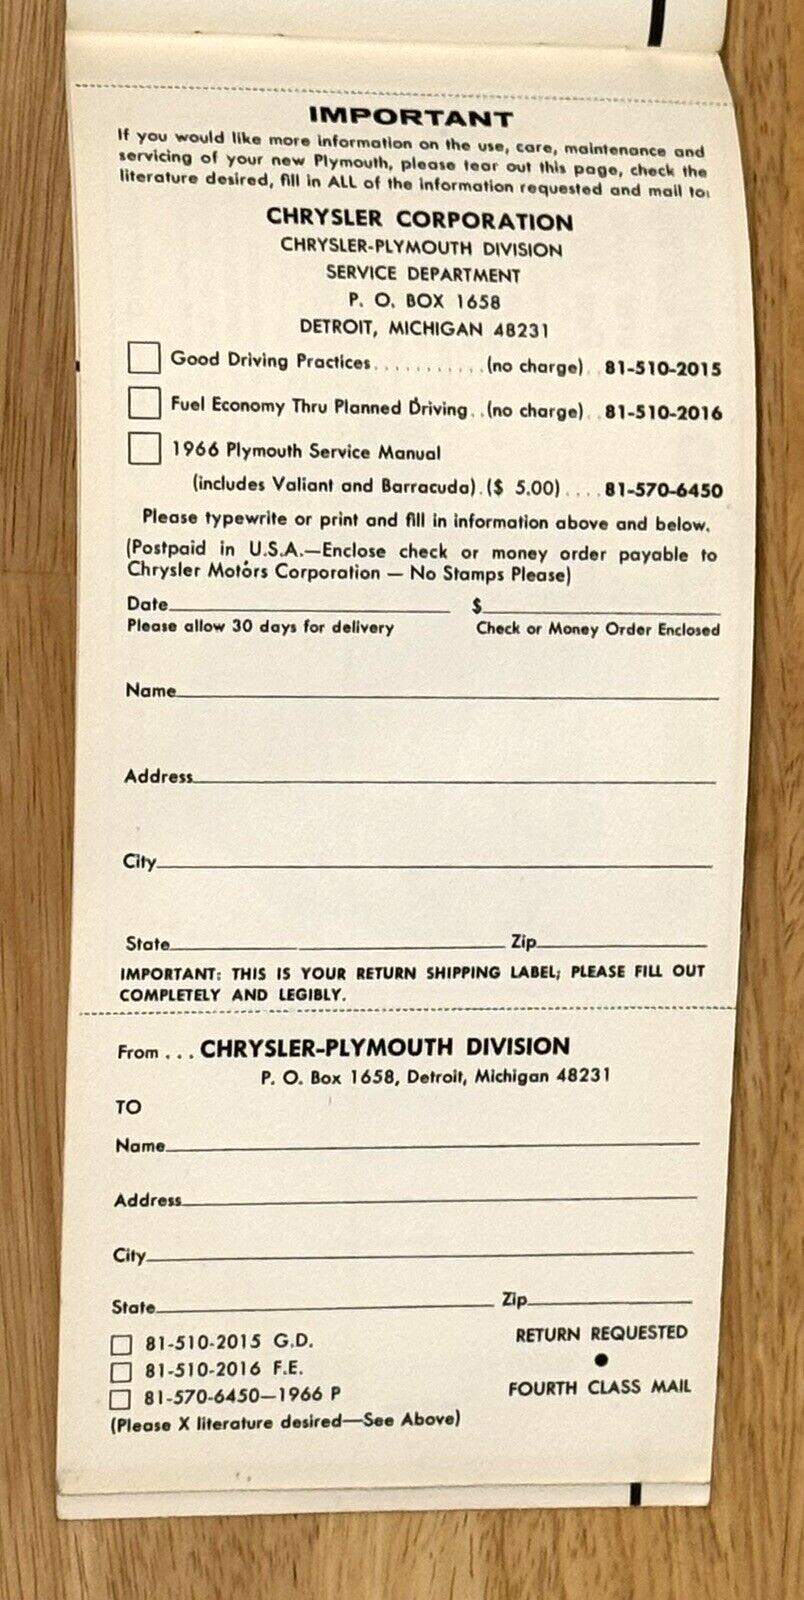 IMPORTANT
If you would like more information on the use, care, maintenance and
servicing of your new Plymouth, please tear out this page, check the
literature desired, fill in ALL of the information requested and mail to:
CHRYSLER CORPORATION
CHRYSLER-PLYMOUTH DIVISION
SERVICE DEPARTMENT
P. O. BOX 1658
DETROIT, MICHIGAN 48231
Good Driving Practices. . . . . . . . . . . (no charge) . . 81-510-2015
Fuel Economy Thru Planned Driving. . (no charge) . . 81-510-2016
1966 Plymouth Service Manual
(includes Valiant and Barracuda) . ($ 5.00) . . . . 81-570-6450
Please typewrite or print and fill in information above and below.
(Postpaid in U.S.A.—Enclose check or money order payable to
Chrysler Motors Corporation — No Stamps Please)
Date____ $____
Please allow 30 days for delivery Check or Money Order Enclosed
Name____
Address____
City____
State____ Zip____
IMPORTANT: THIS IS YOUR RETURN SHIPPING LABEL; PLEASE FILL OUT
COMPLETELY AND LEGIBLY.
From . . . CHRYSLER-PLYMOUTH DIVISION
P. O. Box 1658, Detroit, Michigan 48231
TO
Name____
Address____
City____
State____ Zip____
81-510-2015 G.D. RETURN REQUESTED
81-510-2016 F.E. ●
81-570-6450—1966 P FOURTH CLASS MAIL
(Please X literature desired—See Above)